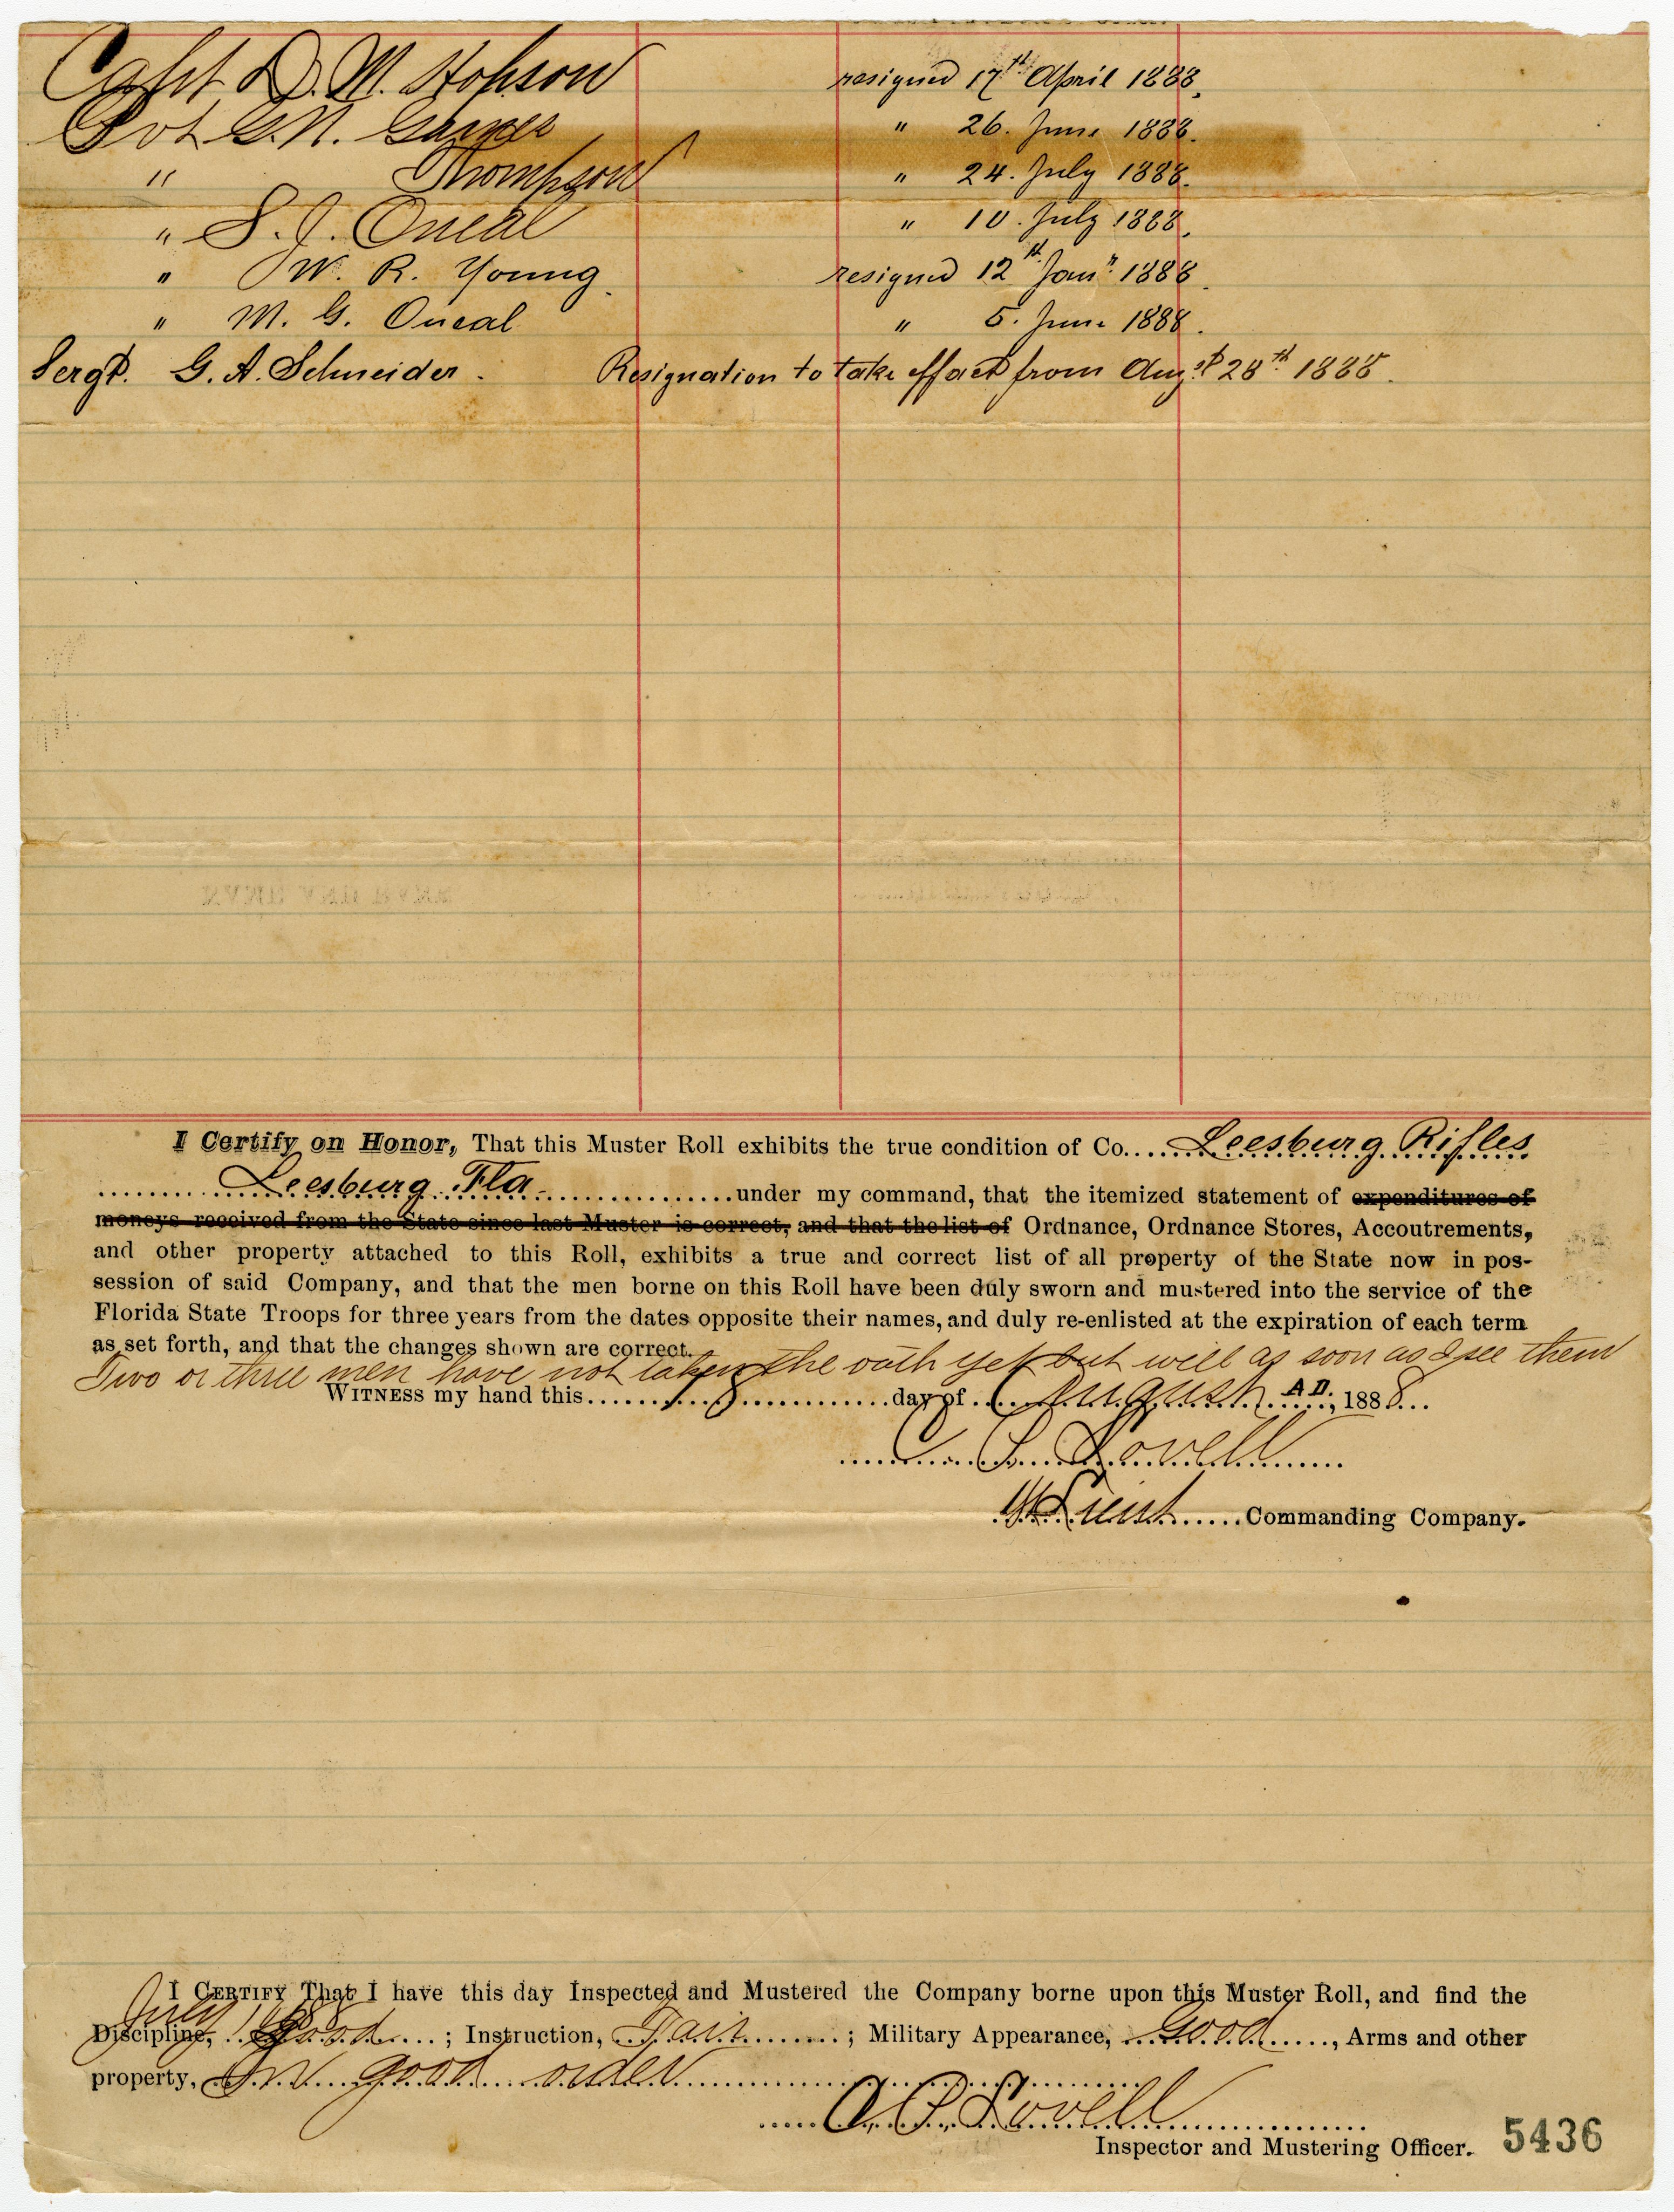 Capt D. M. Hobson resigned 17th April 1888.
Pvt G. N. " 26. June 1888.
" Thompson " 24. July 1888.
" S. J. Oneal " 10. July 1888.
" W. R. Young resigned 12th Jany. 1888.
" M. G. Oneal " 5. June 1888.
Sergt. G. A. Schneider. Resignation to take effect from Augst 28th 1888.
I Certify on Honor, That this Muster Roll exhibits the true condition of Co. Leesburg Rifles
Leesburg Fla. under my command, that the itemized statement of expenditures of
moneys received from the State since last Muster is correct, and that the list of Ordnance, Ordnance Stores, Accoutrements,
and other property attached to this Roll, exhibits a true and correct list of all property of the State now in pos-
session of said Company, and that the men borne on this Roll have been duly sworn and mustered into the service of the
Florida State Troops for three years from the dates opposite their names, and duly re-enlisted at the expiration of each term
as set forth, and that the changes shown are correct.
Two or three men have not taken the oath yet but will as soon as I see them
WITNESS my hand this 18 day of August A.D., 1888
Lovell
Lieut Commanding Company.
I CERTIFY That I have this day Inspected and Mustered the Company borne upon this Muster Roll, and find the
Discipline, Good; Instruction, Fair; Military Appearance, Good, Arms and other
property, In good order
Lovell
Inspector and Mustering Officer. 5436